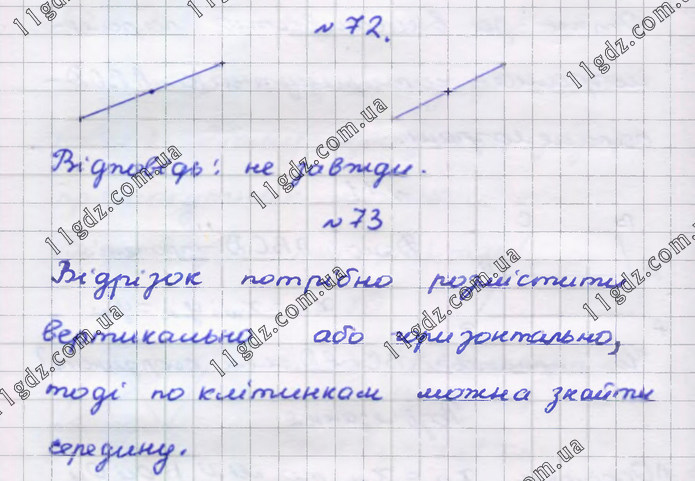 №72.
Відповідь: не завжди.
№73
Відрізок потрібно розмістити
вертикально або горизонтально,
тоді по клітинкам можна знайти
середину.
11gdz.com.ua
11gdz.com.ua
11gdz.com.ua
11gdz.com.ua
11gdz.com.ua
11gdz.com.ua
11gdz.com.ua
11gdz.com.ua
11gdz.com.ua
11gdz.com.ua